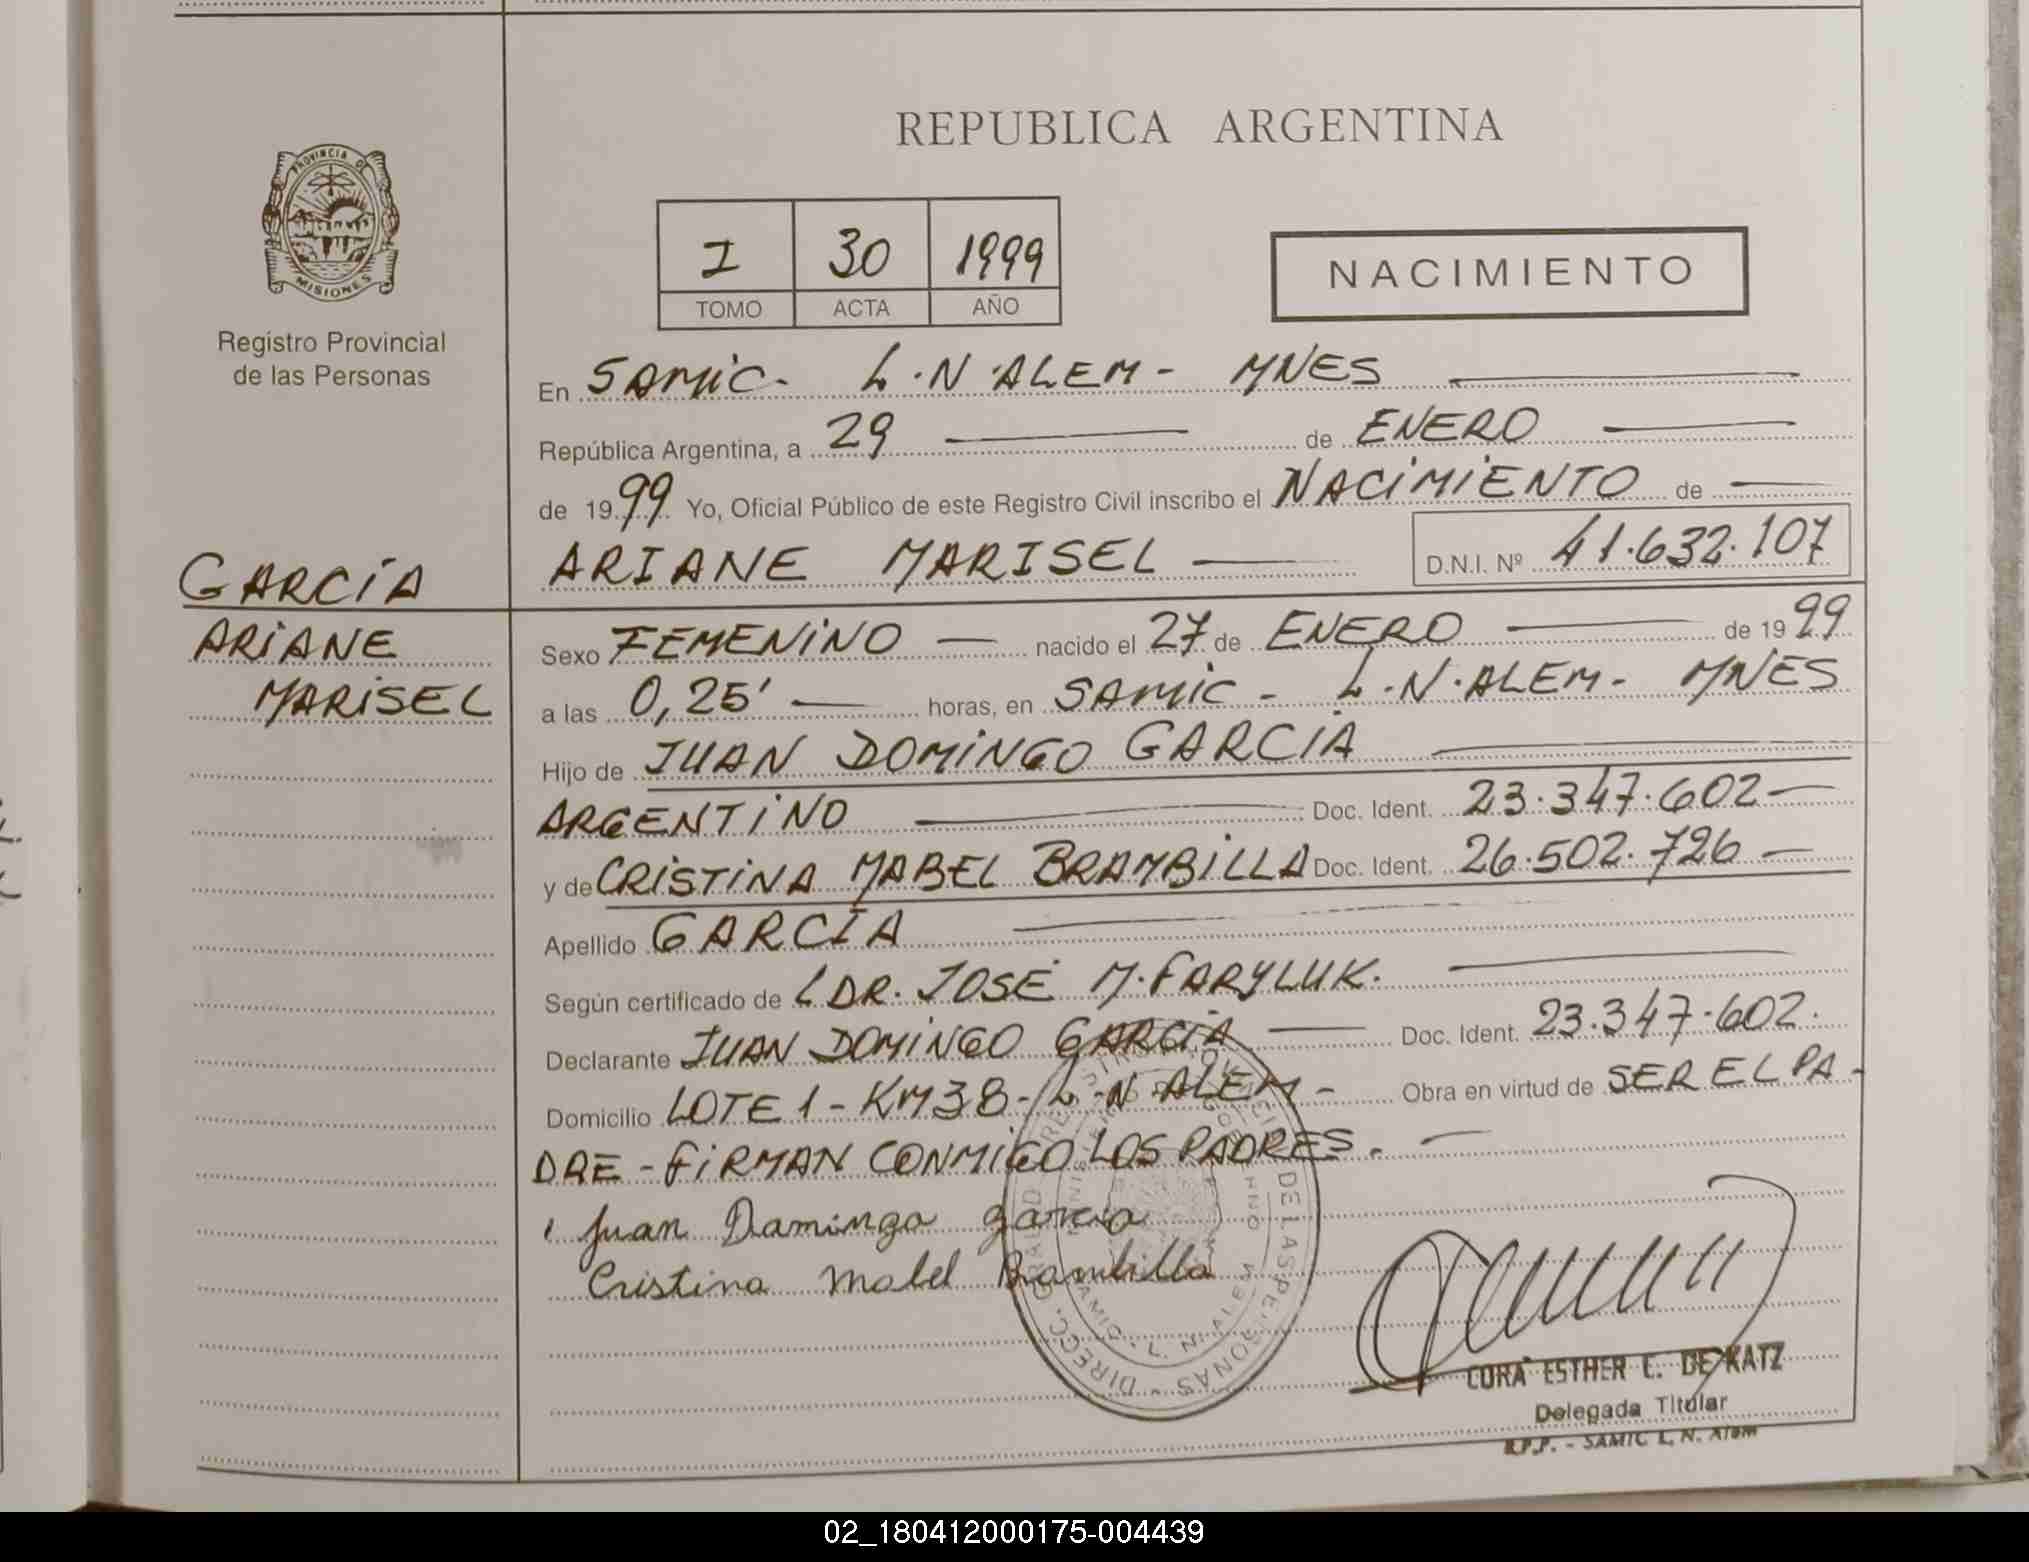 REPUBLICA ARGENTINA
PROVINCIA DE
MISIONES
Registro Provincial
de las Personas
I 30 1999
TOMO ACTA AÑO
NACIMIENTO
En SAMIC - L.N.ALEM - MNES
República Argentina, a 29 de ENERO
de 1999 Yo, Oficial Público de este Registro Civil inscribo el NACIMIENTO de
ARIANE MARISEL D.N.I. Nº 41.632.107
GARCÍA
ARIANE
MARISEL
Sexo FEMENINO nacido el 27 de ENERO de 1999
a las 0,25' horas, en SAMIC - L.N.ALEM - MNES
Hijo de JUAN DOMINGO GARCIA
ARGENTINO Doc. Ident. 23.347.602
y de CRISTINA MABEL BRAMBILLA Doc. Ident. 26.502.726
Apellido GARCÍA
Según certificado de DR. JOSÉ M. FARYLUK.
Declarante JUAN DOMINGO GARCÍA Doc. Ident. 23.347.602.
Domicilio LOTE 1 - KM 38 - L.N ALEM - Obra en virtud de SER EL PA-
DRE - FIRMAN CONMIGO LOS PADRES.
Juan Domingo garcia
Cristina Mabel Brambilla
CORA ESTHER C. DE KATZ
Delegada Titular
R.P.P. - SAMIC L. N. Alem
02_180412000175-004439